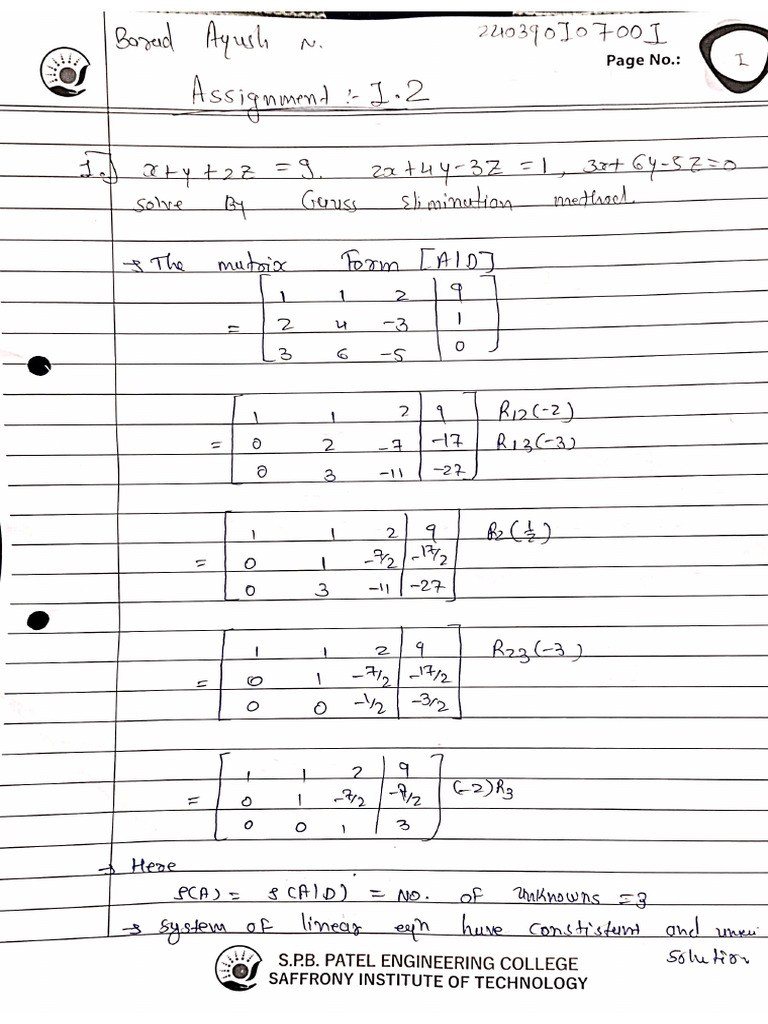 Borad Ayush N. 240390107001
Page No.: 1
Assignment :- 1.2
1.) x+y+2z = 9. 2x+4y-3z = 1, 3x+6y-5z=0
solve By Gauss Elimination method.
→ The matrix Form [A|D]
1 1 2 | 9
= 2 4 -3 | 1
3 6 -5 | 0
1 1 2 | 9 R12(-2)
= 0 2 -7 | -17 R13(-3)
0 3 -11 | -27
1 1 2 | 9 R2(1/2)
= 0 1 -7/2 | -17/2
0 3 -11 | -27
1 1 2 | 9 R23(-3)
= 0 1 -7/2 | -17/2
0 0 -1/2 | -3/2
1 1 2 | 9
= 0 1 -7/2 | -7/2 (-2)R3
0 0 1 | 3
→ Here
ρ(A) = ρ(A|D) = NO. of unknowns = 3
→ system of linear eqn have constistent and
solution
S.P.B. PATEL ENGINEERING COLLEGE
SAFFRONY INSTITUTE OF TECHNOLOGY